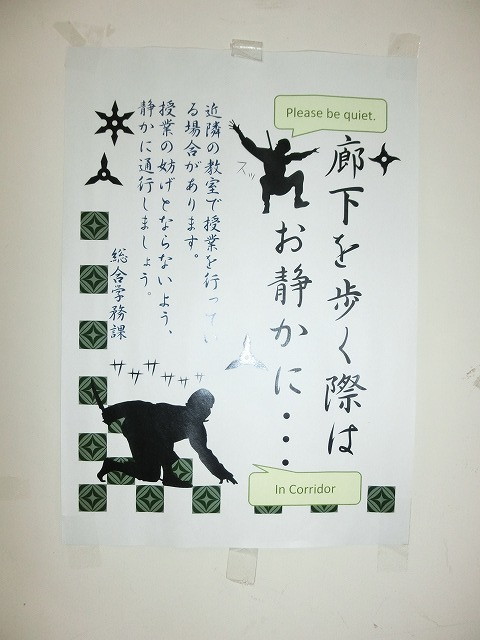 Please be quiet.
廊下を歩く際は
お静かに・・・
In Corridor
スッ
近隣の教室で授業を行ってい
る場合があります。
授業の妨げとならないよう、
静かに通行しましょう。
総合学務課
サササササササ